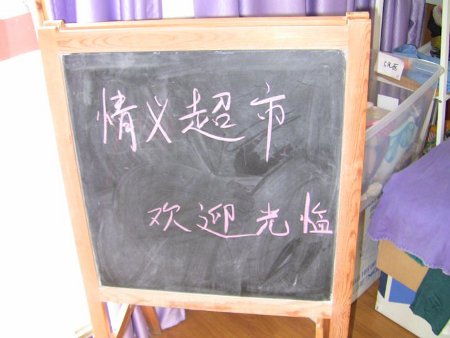 情义超市
欢迎光临